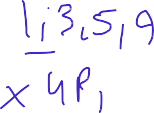 1,3,5,9
x 4P,